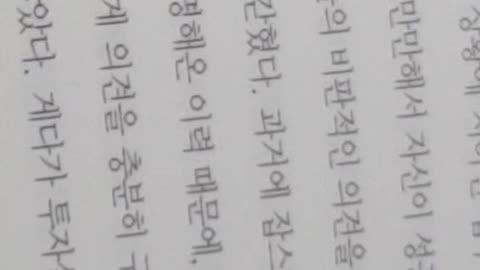 만만해서 자신이
의 비판적인 의견을
간혔다. 과거에 잡스
평해온 이력 때문에.
게 의견을 충분히
았다. 게다가 투자